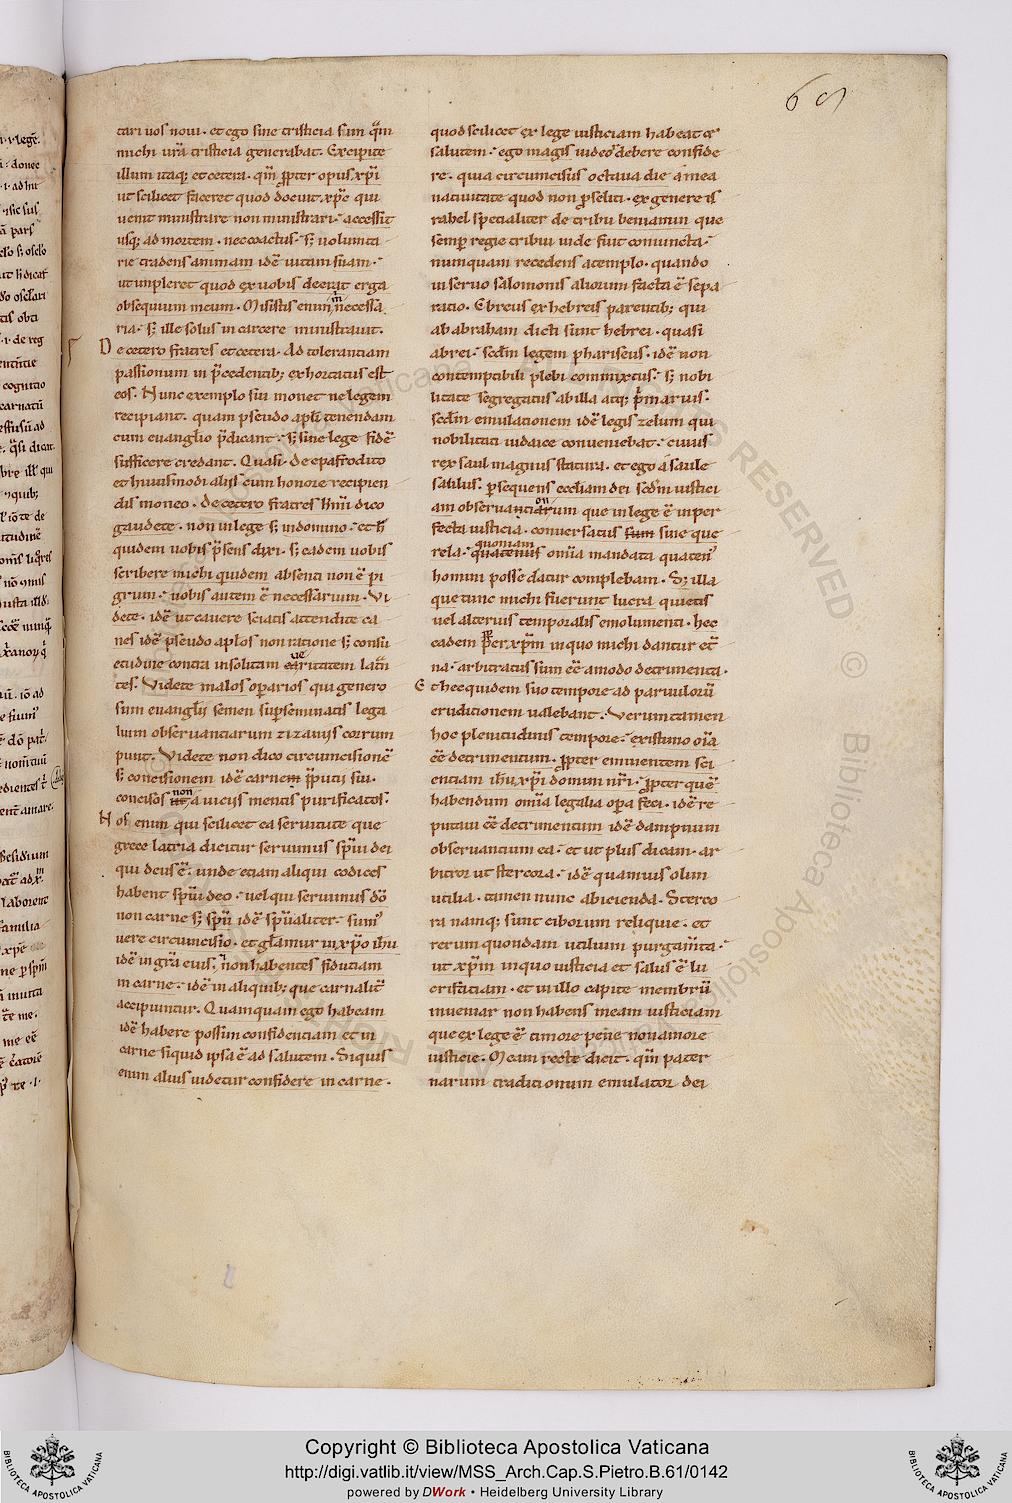 69
tari uos noui · et ego sine tristicia sim qm̄
michi ur̄a tristicia generabat · Excipite
illum itaq; et cetera · qm̄ ꝓpter opus xp̄i
ut scilicet faceret quod docuit xp̄c qui
uenit ministrare non ministrari · accessit
usq; ad mortem · nec coactus · s; uolunta
rie tradens animam idē uitam suam ·
ut impleret quod ex uobis deerat erga
obsequium meum · Misistis enim m̄ necessa
ria · s; ille solus in carcere ministrauit ·
De cetero fratres et cetera · Ad tolerantiam
passionum in p̄cedentib; exhortatus est
eos · Nunc exemplo sui monet ne legem
recipiant · quam pseudo apl̄i tenendam
cum euanglio p̄dicant · s; sine lege fidē
sufficere credant · Quasi · de epafrodito
et huiusmodi alijs cum honore recipien
dis moneo · de cetero fratres hm̄i dico
gaudete · non in lege s; in domino · et h̄
quidem uobis p̄sens dixi · s; eadem uobis
scribere michi quidem absenti non ē pi
grum · uobis autem ē necessarium · Vi
dete · idē ut cauere sciatis attendite ca
nes idē pseudo aplos non ratione s; consu
etudine contra insolitam ueritatem latn̄
tes · Videte malos oparios qui genero
sum euanglij semen sup̄seminatis lega
lium obseruantiarum zizaniis corrum
punt · Videte non dico circumcisionē
s; concisionem idē carnem p̄putij sui ·
concisos non a uicijs mentis purificatos ·
Nos enim qui scilicet ea seruitute que
grece latria dicitur seruimus sp̄ui dei
qui deus ē · unde etiam aliqui codices
habent sp̄ui deo · uel qui seruimus dō
non carne s; sp̄u idē sp̄ualiter · sum̄
uere circumcisio · et gl̄amur in xp̄o ih̄u
idē in gr̄a eius · non habentes fiduciam
in carne · idē in aliquib; que carnalit̄
accipiuntur · Quamquam ego habeam
idē habere possim confidentiam et in
carne siquid ipsa ē ad salutem · Siquis
enim alius uidetur confidere in carne ·
quod scilicet ex lege iusticiam habeat et
salutem · ego magis uideo debere confide
re · quia circumcisus octaua die a mea
natiuitate quod non p̄seliti · ex genere is
rahel specialiter de tribu beniamin que
semp̄ regie tribui iude fuit coniuncta ·
numquam recedens a templo · quando
in seruo salomonis aliorum facta ē sepa
ratio · Ebreus ex hebreis parentib; qui
ab abraham dicti sunt hebrei · quasi
abrei · scdm̄ legem phariseus · idē non
contemptibili plebi commixtus · s; nobi
litate segregatus ab illa atq; p̄marius ·
scdm̄ emulationem idē legis zelum qui
nobilitati iudaice conueniebat · cuius
rex saul magnus statura · et ego a saule
saulus · p̄sequens eccl̄iam dei scdm̄ iustici
am obseruationum que in lege ē inper
fecta iusticia · conuersatus sum sine que
rela · quoniam omīa mandata quaten̄
homini posse datur complebam · S; illa
que tunc michi fuerunt lucra quietis
uel alterius temporalis emolumenti · hec
eadem ꝓpter xp̄m in quo michi dantur et̄
na · arbitratus sum eē amodo detrimenta ·
Et hec quidem suo tempore ad paruulorū
eruditionem ualebant · Verumtamen
hoc plenitudinis tempore · existimo oīa
eē detrimentum · ꝓpter eminentem sci
entiam ih̄u xp̄i domini nr̄i · ꝓpter quē
habendum omīa legalia opa feci · idē re
putaui eē detrimentum idē dampnum
obseruantium ea · et ut plus dicam · ar
bitror ut stercora · idē quamuis olim
utilia · tamen nunc abicienda · Sterco
ra namq; sunt ciborum reliquie · et
rerum quondam utilium purgam̄ta ·
ut xp̄m in quo iusticia et salus ē lu
crifatiam · et in illo capite membrū
inueniar non habens meam iusticiam
que ex lege ē timore pene non amore
iusticie · Meam recte dicit · qm̄ pater
narum traditionum emulator dei
Copyright © Biblioteca Apostolica Vaticana
http://digi.vatlib.it/view/MSS_Arch.Cap.S.Pietro.B.61/0142
powered by DWork • Heidelberg University Library